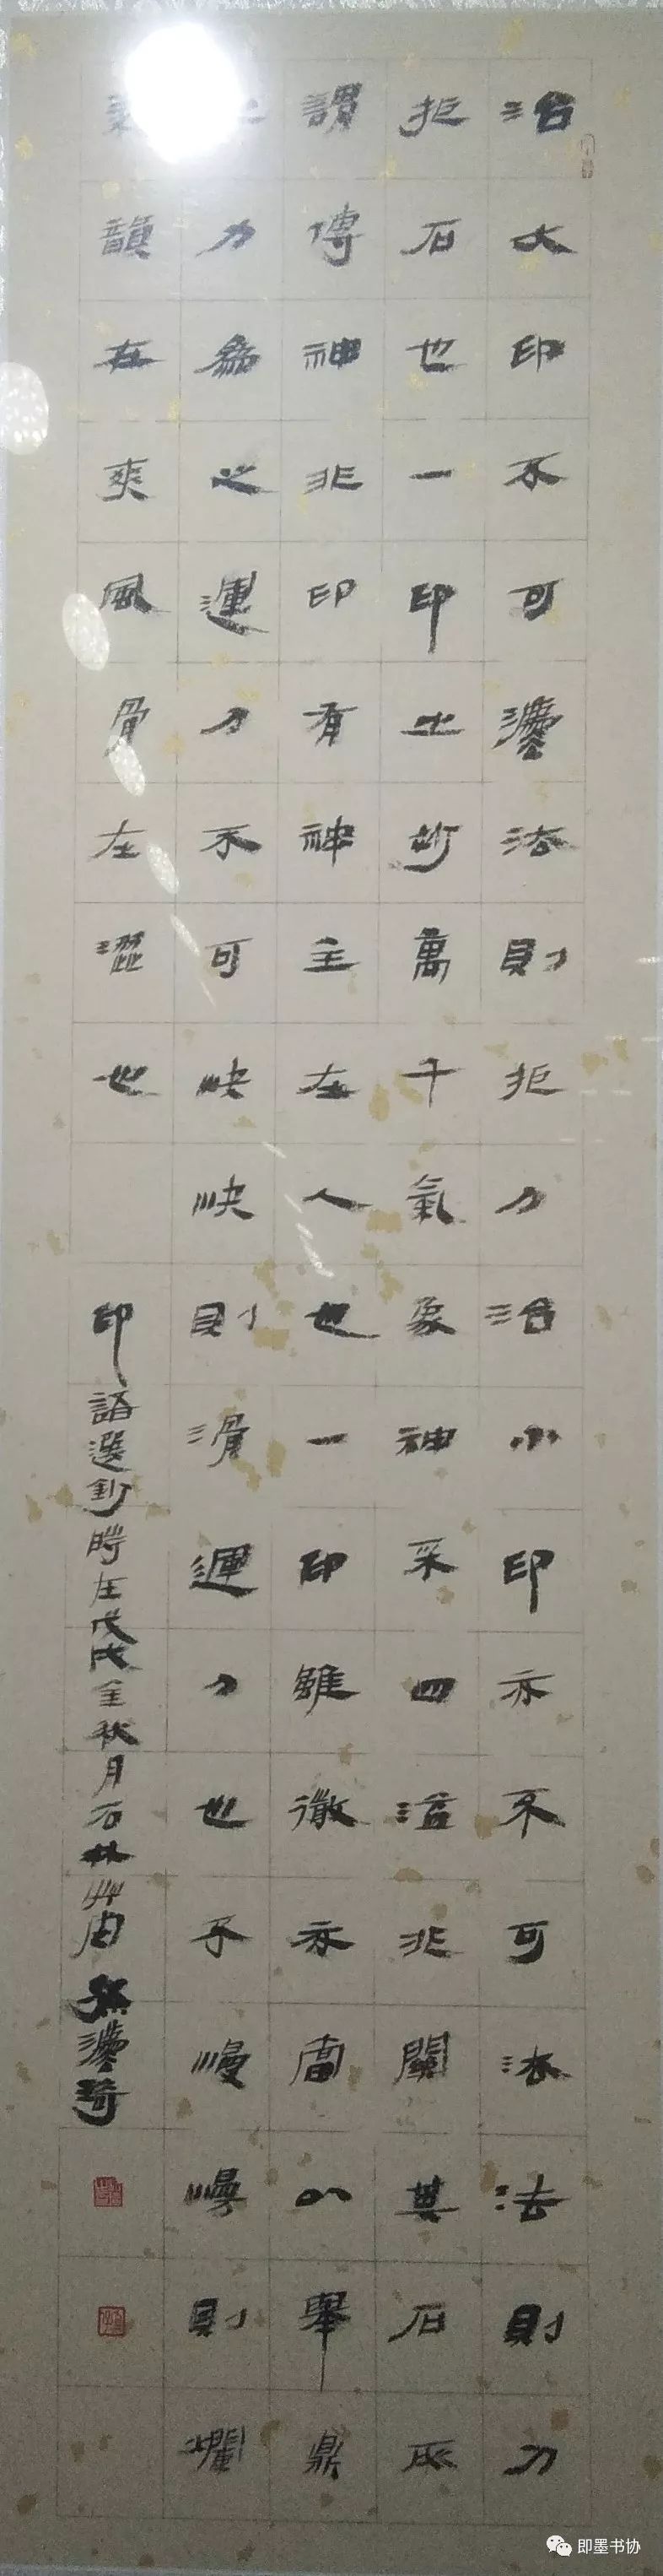 治大印不可灋法則拒刀治小印亦不可法法則刀
拒石也一印之妙萬千氣象神采四溢非關其石所
謂傳神非印有神主在人也一印雖微亦當以舉鼎
力為之運刀不可快快則滑運刀也不慢慢則爛
韻在爽風骨在澀也
印語選鈔時在戊戌金秋月石林艸 灋琦
即墨书协